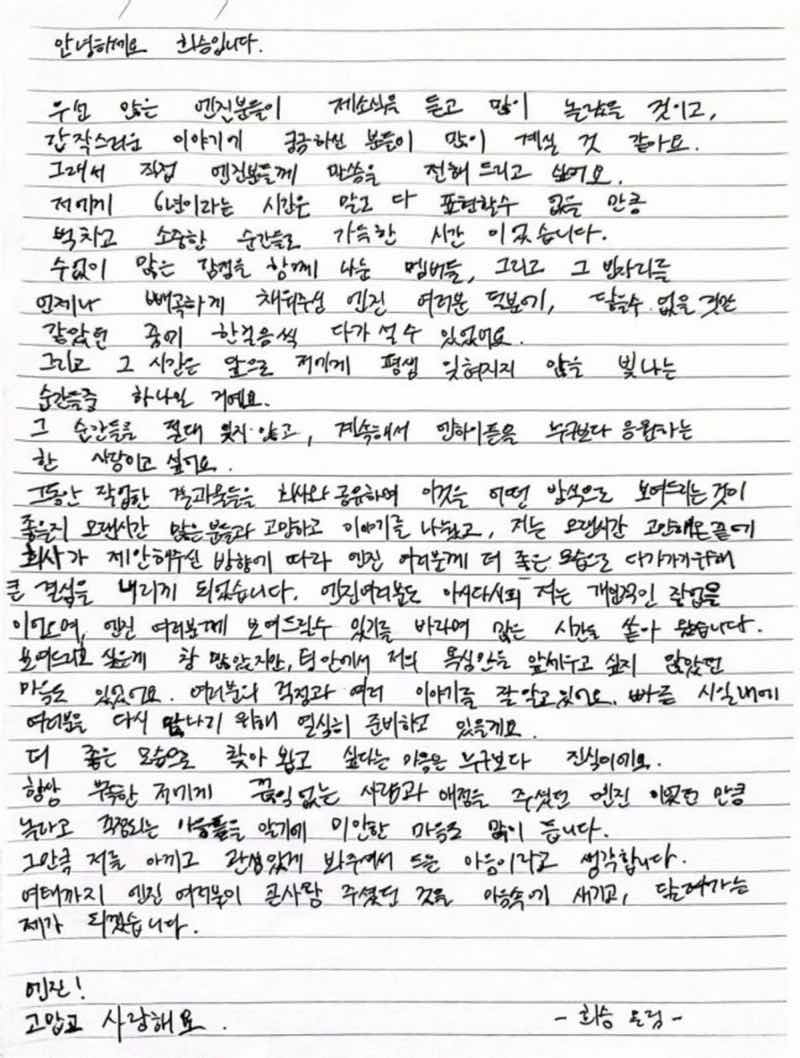 안녕하세요 희승입니다.
우선 많은 엔진분들이 제소식을 듣고 많이 놀랐을 것이고,
갑작스러운 이야기에 궁금하신 분들이 많이 계실 것 같아요.
그래서 직접 엔진분들께 말씀을 전해 드리고 싶어요.
저에게 6년이라는 시간은 말로 다 표현할수 없을 만큼
벅차고 소중한 순간들로 가득한 시간 이었습니다.
수없이 많은 감정을 함께 나눈 멤버들, 그리고 그 빈자리를
언제나 빼곡하게 채워주신 엔진 여러분 덕분에, 닿을수 없을 것만
같았던 꿈에 한걸음씩 다가 설 수 있었어요.
그리고 그 시간은 앞으로 저에게 평생 잊혀지지 않을 빛나는
순간들중 하나일 거에요.
그 순간들을 절대 잊지 않고, 계속해서 엔하이픈을 누구보다 응원하는
한 사람이고 싶어요.
그동안 작업한 결과물들을 회사와 공유하며 이것을 어떤 방식으로 보여드리는것이
좋을지 오랜시간 많은분들과 고민하고 이야기를 나눴고, 저는 오랜시간 고민해온끝에
회사가 제안해주신 방향에 따라 엔진 여러분께 더 좋은 모습으로 다가가기위해
큰 결심을 내리게 되었습니다. 엔진여러분도 아시다시피 저는 개인적인 작업을
이어오며, 엔진 여러분께 보여드릴수 있기를 바라며 많은 시간을 쏟아 왔습니다.
보여드리고 싶은게 참 많았지만, 팀안에서 저의 욕심만을 앞세우고 싶지 않았던
마음도 있었어요. 여러분의 걱정과 여러 이야기를 잘 알고있어요. 빠른 시일내에
여러분을 다시 만나기 위해 열심히 준비하고 있을게요.
더 좋은 모습으로 찾아 뵙고 싶다는 마음은 누구보다 진심이에요.
항상 부족한 저에게 끊임없는 사랑과 애정을 주셨던 엔진 이었던 만큼
놀라고 걱정되는 마음들을 알기에 미안한 마음도 많이 듭니다.
그만큼 저를 아끼고 관심있게 봐주셔서 드는 마음이라고 생각합니다.
여태까지 엔진 여러분이 큰사랑 주셨던 것을 마음속에 새기고, 달려가는
제가 되겠습니다.
엔진!
고맙고 사랑해요.
- 희승 올림 -